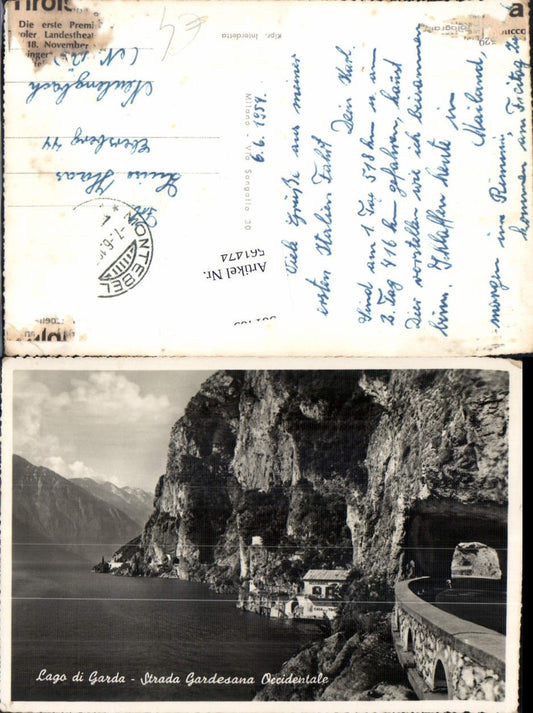 Tirols
Die erste Premi
oler Landesthea
18. November
inger"
(N. Ö.)
Neulengbach
Ebersberg 44
Luise Haas
MONTEBEL
-7.-6.
1
Ripr. interdetta
Milano - Via Sangallo 30
6.6.1954.
Viele Grüße aus meiner
ersten Italien Fahrt
Dein Karl
Sind am 1 Tag 518 km u. am
2. Tag 416 km gefahren, kannst
Dir vorstellen wie ich beisammen
bin. Schlaffen heute in
Mailand,
morgen in Rimini,
kommen am Freitag zu
Artikel Nr.
561474
Lago di Garda - Strada Gardesana Occidentale